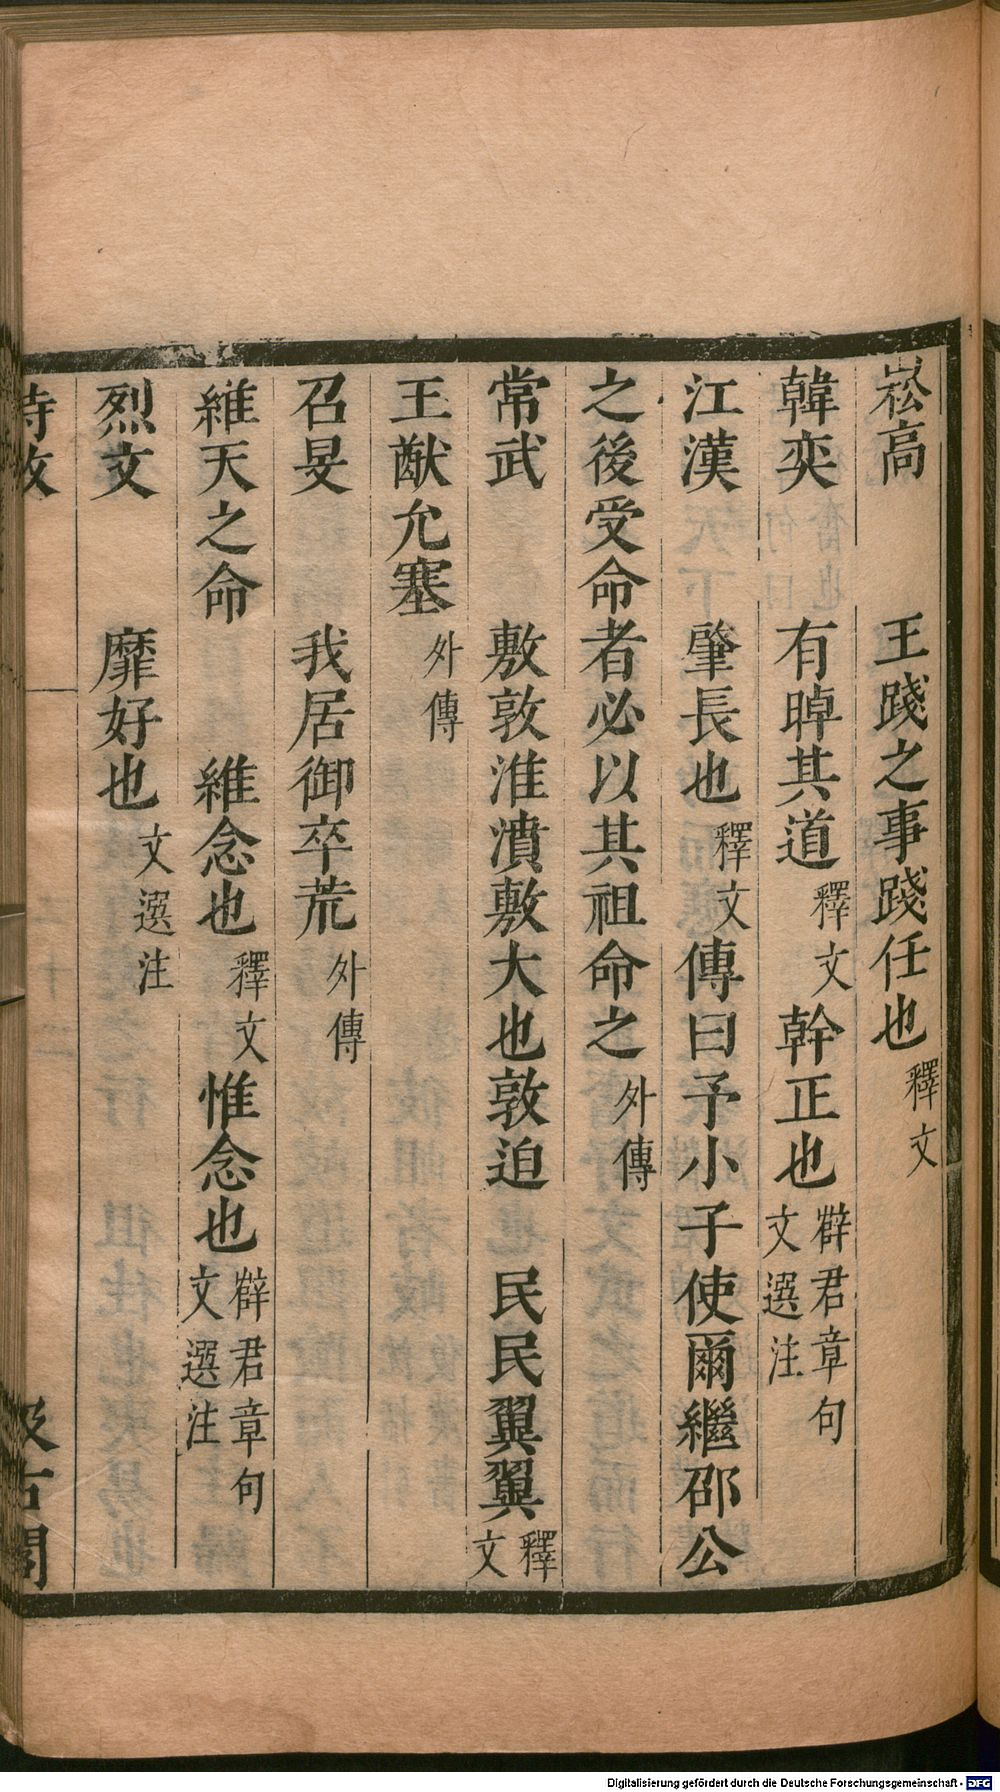 崧高　王踐之事踐任也釋文
韓奕　有晫其道釋文幹正也薛君章句文選注
江漢　肇長也釋文傳曰予小子使爾繼邵公
之後受命者必以其祖命之外傳
常武　敷敦淮濆敷大也敦迫　民民翼翼釋文
王猷允塞外傳
召旻　我居御卒荒外傳
維天之命　維念也釋文惟念也薛君章句文選注
烈文　靡好也文選注
詩攷　汲古閣
Digitalisierung gefördert durch die Deutsche Forschungsgemeinschaft - DFG